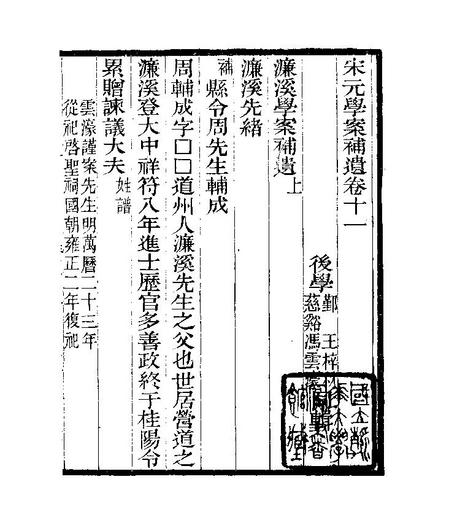 宋元學案補遺卷十一
後學
鄞 王梓
慈谿馮雲
濂溪學案補遺上
濂溪先緒
補縣令周先生輔成
周輔成字□□道州人濂溪先生之父也世居營道之
濂溪登大中祥符八年進士歷官多善政終于桂陽令
累贈諫議大夫姓譜
雲濠謹案先生明萬曆二十三年
從祀啓聖祠國朝雍正二年復祀